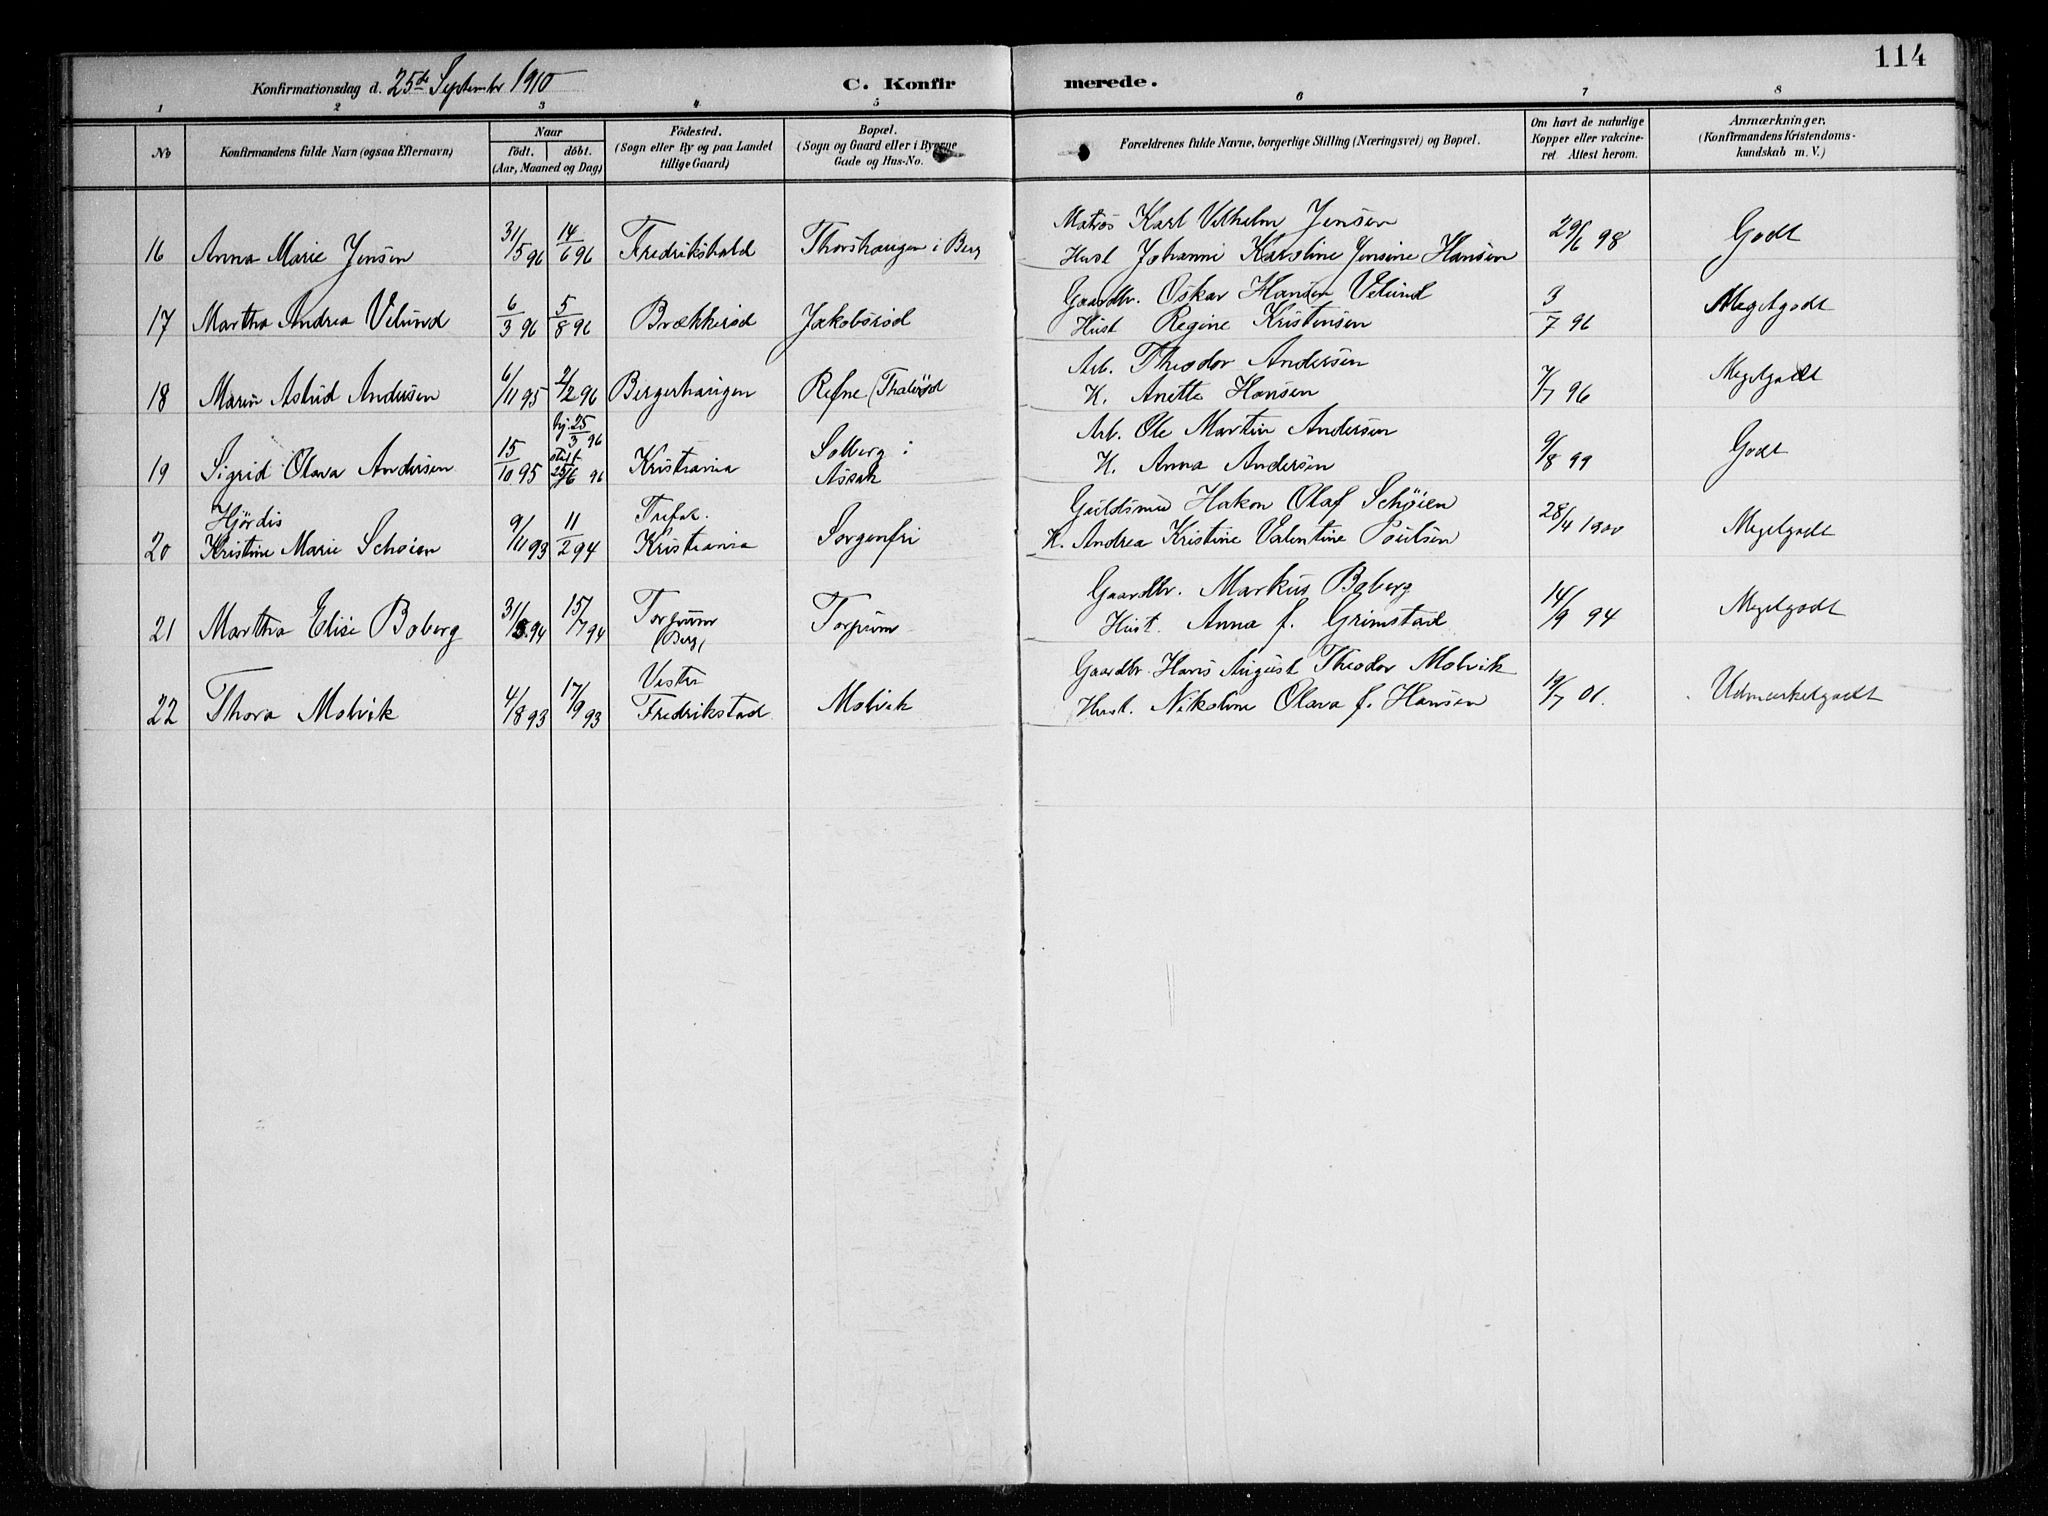 114
Konfirmationsdag d. 25de September 1910
C. Konfirmerede.
1 2 3 4 5 6 7 8
No
Konfirmandens fulde Navn (ogsaa Efternavn)
Naar
födt. döbt.
(Aar, Maaned og Dag)
Födested.
(Sogn eller By og paa Landet
tillige Gaard)
Bopæl.
(Sogn og Gaard eller i Byerne
Gade og Hus-No.
Forældrenes fulde Navne, borgerlige Stilling (Næringsvei) og Bopæl.
Om havt de naturlige
Kopper eller vakcine-
ret Attest herom.
Anmærkninger.
(Konfirmandens Kristendoms-
kundskab m. V.)
16 Anna Marie Jensen 31/5 96 14/6 96 Fredrikshald Thorshaugen i Berg
Matros Karl Vilhelm Jensen
Hust Johanne Karoline Jensine Hansen
29/6 98 Godt
17 Martha Andrea Velund 6/3 96 5/8 96 Brækkerød Jakobsrød
Gaardbr. Oskar Hansen Velund
Hust Regine Kristensen
3/7 96 Megetgodt
18 Maren Astrid Andersen 6/11 95 2/2 96 Bergerhaugen Refne (Thalerød
Arb. Theodor Andersen
H. Anette Hansen
7/7 96 Megetgodt
19 Sigrid Olava Andersen 15/10 95
hj. 25/3 96
stedf.
25/6 96
Kristiania
Solberg i
Assak
Arb. Ole Martin Andersen
H. Anna Andersen
9/8 99 Godt
20 Hjördis
Kristine Marie Schøien 9/11 93 11/2 94
Trefol.
Kristiania
Sorgenfri
Guldsmed Hakon Olaf Schøien
H. Andrea Kristine Valentine Poulsen
28/4 1900 Megetgodt
21 Martha Elise Boberg 31/5 94 15/7 94
Torpum
(Berg)
Torpum
Gaardbr. Markus Boberg
Hust. Anna f. Grimstad
14/9 94 Megetgodt
22 Thora Molvik 4/8 93 17/9 93
Vestre
Fredrikstad
Molvik
Gaardbr. Hans August Theodor Molvik
Hust. Nikoline Olava f. Hansen
19/7 01. Udmærketgodt